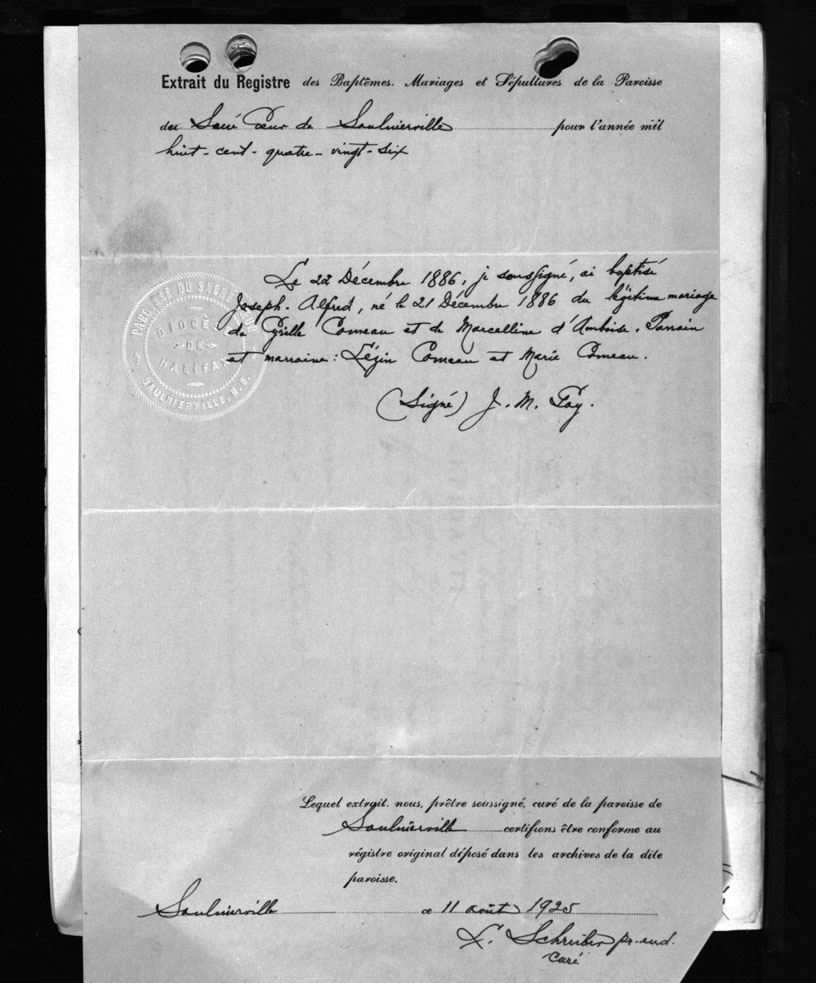 Extrait du Registre des Baptêmes. Mariages et Sépultures de la Paroisse
du Sacré Cœur de Saulnierville pour l'année mil
huit-cent-quatre-vingt-six
Le 22 Décembre 1886, je soussigné, ai baptisé
Joseph. Alfred, né le 21 Décembre 1886 du légitime mariage
de Cyrille Comeau et de Marcelline d'Amboise. Parrain
et marraine: Comeau et Marie Comeau.
(Signé) J. M. Gay.
PAROISSE DU SACRÉ
DIOCÈSE
DE
HALIFAX
SAULNIERVILLE, N. S.
Lequel extrait, nous, prêtre soussigné, curé de la paroisse de
Saulnierville certifions être conforme au
régistre original déposé dans les archives de la dite
paroisse.
Saulnierville ce 11 août 1925
Schreiber pr. eud.
Curé